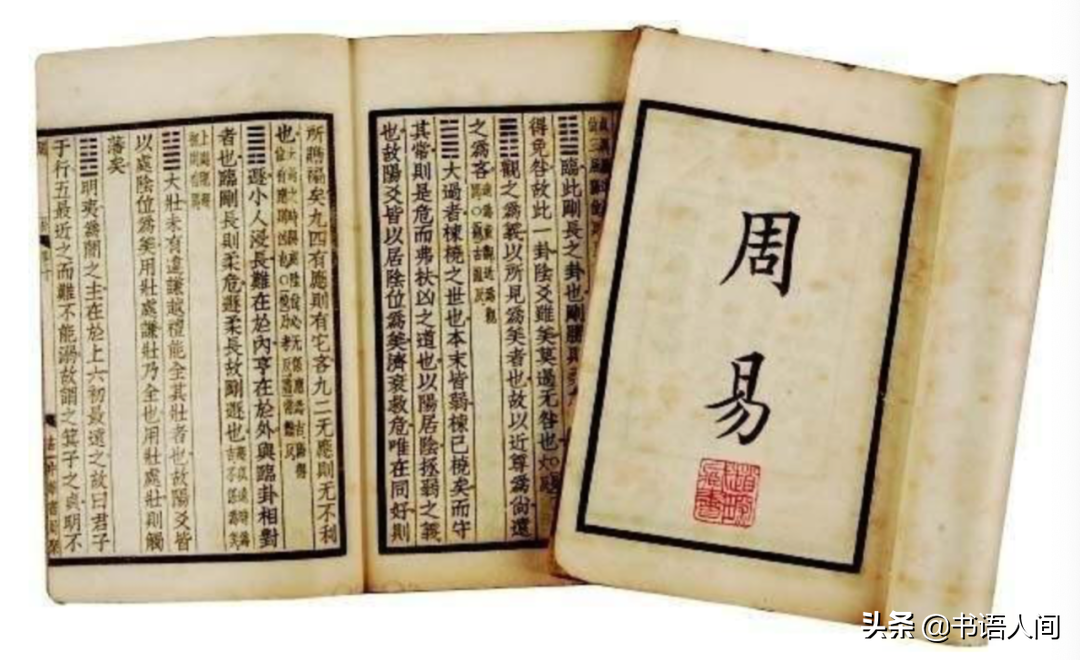 周易
䷒臨此剛長之卦也剛勝
得免咎故此一卦陰爻雖美莫過无咎也
䷓觀之爲義以所見爲美者也故以近尊爲尚遠
之爲吝
䷛大過者棟橈之世也本末皆弱棟已橈矣而守
其常則是危而弗扶凶之道也以陽居陰拯弱之義
也故陽爻皆以居陰位爲美濟衰救危唯在同好則
所贍褊矣九四有應則有它吝九二无應則无不利
也
䷠遯小人浸長難在於內亨在於外與臨卦相對
者也臨剛長則柔危遯柔長故剛遯也
䷡大壯未有違謙越禮能全其壯者也故陽爻皆
以處陰位爲美用壯處謙壯乃全也用壯處壯則觸
藩矣
䷣明夷爲闇之主在於上六初最遠之故曰君子
于行五最近之而難不能溺故謂之箕子之貞明不
头条 @书语人间